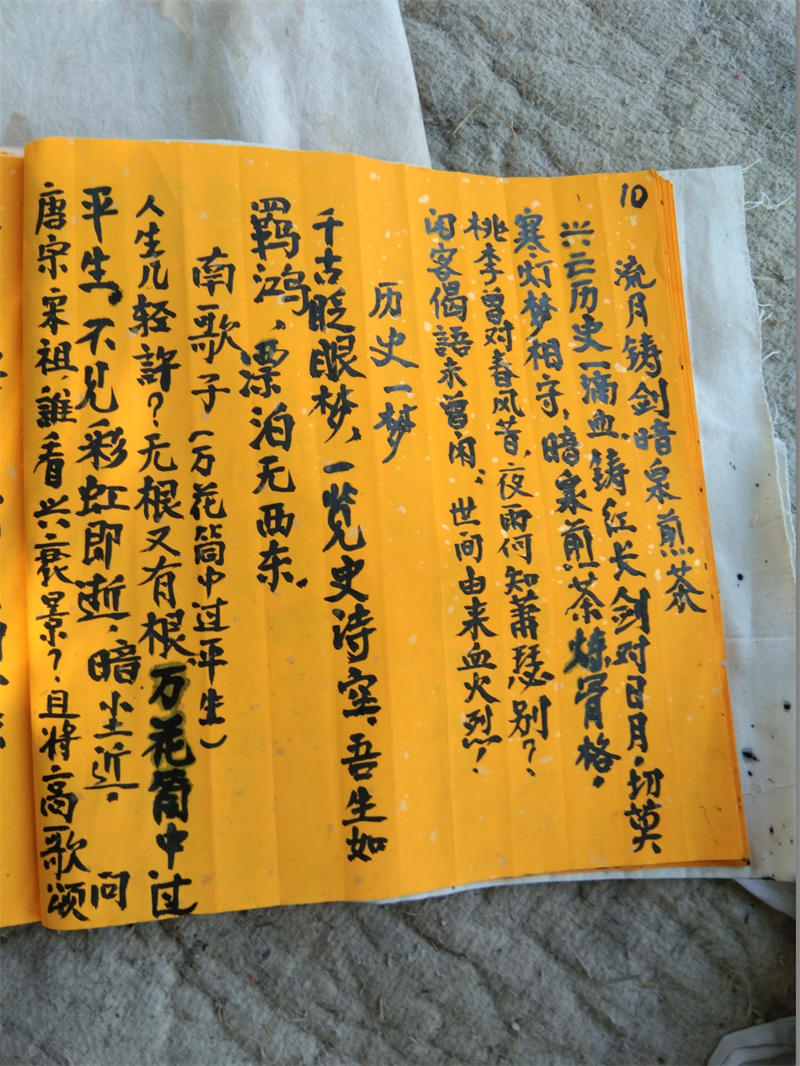 10
流月铸剑暗泉煎茶
兴亡历史一滴血，铸红长剑对日月。切莫
寒灯梦相守，暗泉煎茶炼骨格。
桃李曾对春风昔，夜雨何知萧瑟别？
闲客偈語未曾闲，世间由来血火烈！
历史一梦
千古眨眼梦，一览史诗空，吾生如
羁鸿，漂泊无西东。
南歌子（万花筒中过平生）
人生几轻許？无根又有根万花筒中过
平生，不见彩虹即逝，暗尘近。 问
唐宗宋祖，誰看兴衰景？且将高歌颂